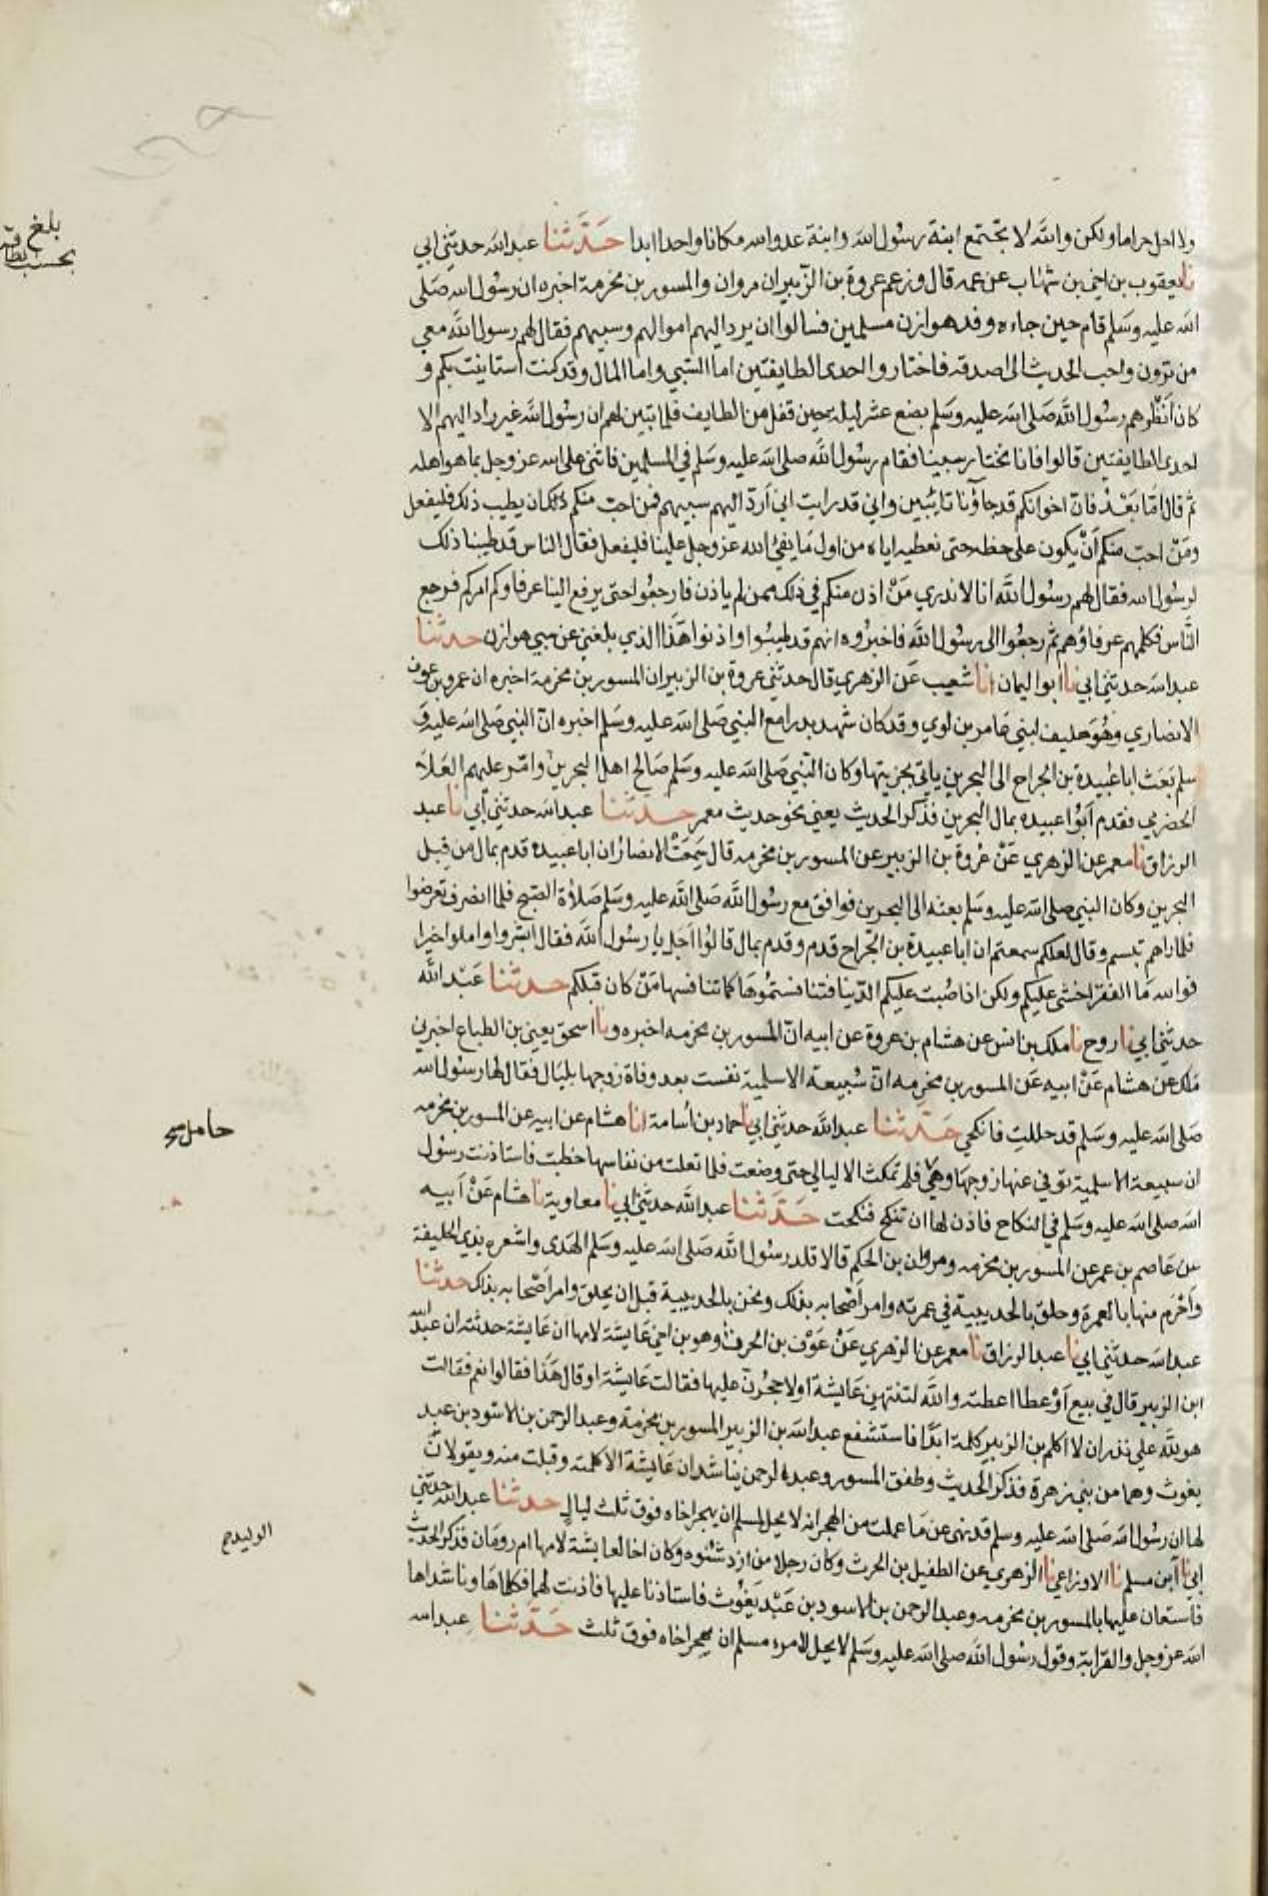 ولا احل حراما ولكن والله لا تجتمع ابنة رسول الله وابنة عدو الله مكانا واحدا ابدا حدثنا عبد الله حدثني ابي
نا يعقوب بن اخي بن شهاب عن عمه قال وزعم عروة بن الزبير ان مروان والمسور بن مخرمة اخبره ان رسول الله صلى
الله عليه وسلم قام حين جاءه وفد هوازن مسلمين فسالوا ان يرد اليهم اموالهم وسبيهم فقال لهم رسول الله معي
من ترون واحب الحديث الى اصدقه فاختاروا احدى الطايفتين اما السبي واما المال وقد كنت استانيت بكم و
كان انظرهم رسول الله صلى الله عليه وسلم بضع عشر ليلة حين قفل من الطايف فلما تبين لهم ان رسول الله غير راد اليهم الا
احدى الطايفتين قالوا فانا نختار سبينا فقام رسول الله صلى الله عليه وسلم في المسلمين فاثنى على الله عز وجل بما هو اهله
ثم قال اما بعد فان اخوانكم قد جاؤنا تائبين واني قد رايت اني ارد اليهم سبيهم فمن احب منكم ان يطيب ذلك فليفعل
ومن احب منكم أن يكون على حظه حتى نعطيه اياه من اول ما يفئ الله عز وجل علينا فليفعل فقال الناس قد طيبنا ذلك
لرسول الله فقال لهم رسول الله انا لا ندري من اذن منكم في ذلك ممن لم ياذن فارجعوا حتى يرفع الينا عرفاوكم امركم فرجع
الناس فكلمهم عرفاؤهم ثم رجعوا الى رسول الله فاخبروه انهم قد طيبوا واذنوا هذا الذي بلغني عن سبي هوازن حدثنا
عبد الله حدثني ابي نا ابو اليمان انا شعيب عن الزهري قال حدثني عروة بن الزبير ان المسور بن مخرمة اخبره ان عمرو بن عوف
الانصاري وهو حليف لبني عامر بن لوي وقد كان شهد بدرا مع النبي صلى الله عليه وسلم اخبره ان النبي صلى الله عليه و
سلم بعث ابا عبيدة بن الجراح الى البحرين ياتي بجزيتها وكان النبي صلى الله عليه وسلم صالح اهل البحرين وامر عليهم العلاء
الحضرمي فقدم ابوا عبيده بمال البحرين فذكر الحديث يعني نحو حديث معمر حدثنا عبد الله حدثني ابي نا عبد
الرزاق نا معمر عن الزهري عن عروة بن الزبير عن المسور بن مخرمه قال سمعت الانصار ان ابا عبيده قدم بمال من قبل
البحرين وكان النبي صلى الله عليه وسلم بعثه الى البحرين فوافق مع رسول الله صلى الله عليه وسلم صلاة الصبح فلما انصرف تعرضوا
فلما راهم تبسم وقال لعلكم سمعتم ان ابا عبيدة بن الجراح قدم وقدم بمال قالوا اجل يا رسول الله فقال ابشروا واملوا خيرا
فوالله ما الفقر اخشى عليكم ولكن اذا صبت عليكم الدنيا فتنافستموها كما تنافسها من كان قبلكم حدثنا عبد الله
حدثني ابي نا روح نا ملك بن انس عن هشام بن عروة عن ابيه ان المسور بن مخرمه اخبره ونا اسحق يعني بن الطباع اخبرني
ملك عن هشام عن ابيه عن المسور بن مخرمه ان سبيعة الاسلمية نفست بعد وفاة زوجها بليال فقال لها رسول الله
صلى الله عليه وسلم قد حللت فانكحي حدثنا عبد الله حدثني ابي نا حماد بن اسامة انا هشام عن ابيه عن المسور بن مخرمه
ان سبيعة الاسلمية توفي عنها زوجها وهي فلم تمكث الا ليالي حتى وضعت فلما تعلت من نفاسها خطبت فاستاذنت رسول
الله صلى الله عليه وسلم في النكاح فاذن لها ان تنكح فنكحت حدثنا عبد الله حدثني ابي نا معاوية نا هشام عن ابيه
عن عاصم بن عمر عن المسور بن مخرمه ومروان بن الحكم قالا قلد رسول الله صلى الله عليه وسلم الهدى واشعره بذي الحليفة
واحرم منها بالعمرة وحلق بالحديبية في عمرته وامر اصحابه بذلك ونحن بالحديبية قبل ان يحلق وامر اصحابه بذلك حدثنا
عبد الله حدثني ابي نا عبد الرزاق نا معمر عن الزهري عن عوف بن الحرث وهو بن اخي عايشة لامها ان عايشة حدثته ان عبد الله
ابن الزبير قال في بيع أو عطا اعطته والله لتنتهين عايشة اولاحجرن عليها فقالت عايشة اوقال هذا فقالوا نعم فقالت
هو لله علي نذر ان لا اكلم بن الزبير كلمة ابدا فاستشفع عبد الله بن الزبير المسور بن مخرمة وعبد الرحمن بن الاسود بن عبد
يغوث وهما من بني زهرة فذكر الحديث وطفق المسور وعبد الرحمن يناشدان عايشة الا كلمته وقبلت منه ويقولان
لها ان رسول الله صلى الله عليه وسلم قد نهى عن ما عملت من الهجر انه لا يحل لمسلم ان يهجر اخاه فوق ثلث ليال حدثنا عبد الله حدثني
ابي نا ابن مسلم نا الاوزاعي نا الزهري عن الطفيل بن الحرث وكان رجلا من ازد شنوه وكان اخا لعايشة لامها ام رومان فذكر الحديث
فاستعان عليها بالمسور بن مخرمه وعبد الرحمن بن الاسود بن عبد يغوث فاستاذنا عليها فاذنت لهما فكلماها وناشداها
الله عز وجل والقرابة وقول رسول الله صلى الله عليه وسلم لا يحل لامرء مسلم ان يهجر اخاه فوق ثلث حدثنا عبد الله
بلغ
حامل صح
الوليد صح